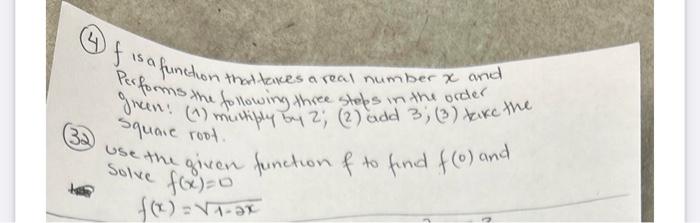 ④ f is a function that takes a real number x and
Performs the following three steps in the order
given: (1) multiply by 2; (2) add 3; (3) take the
square root.
㉜ use the given function f to find f(0) and
Solve f(x)=0
f(x) = √1-2x